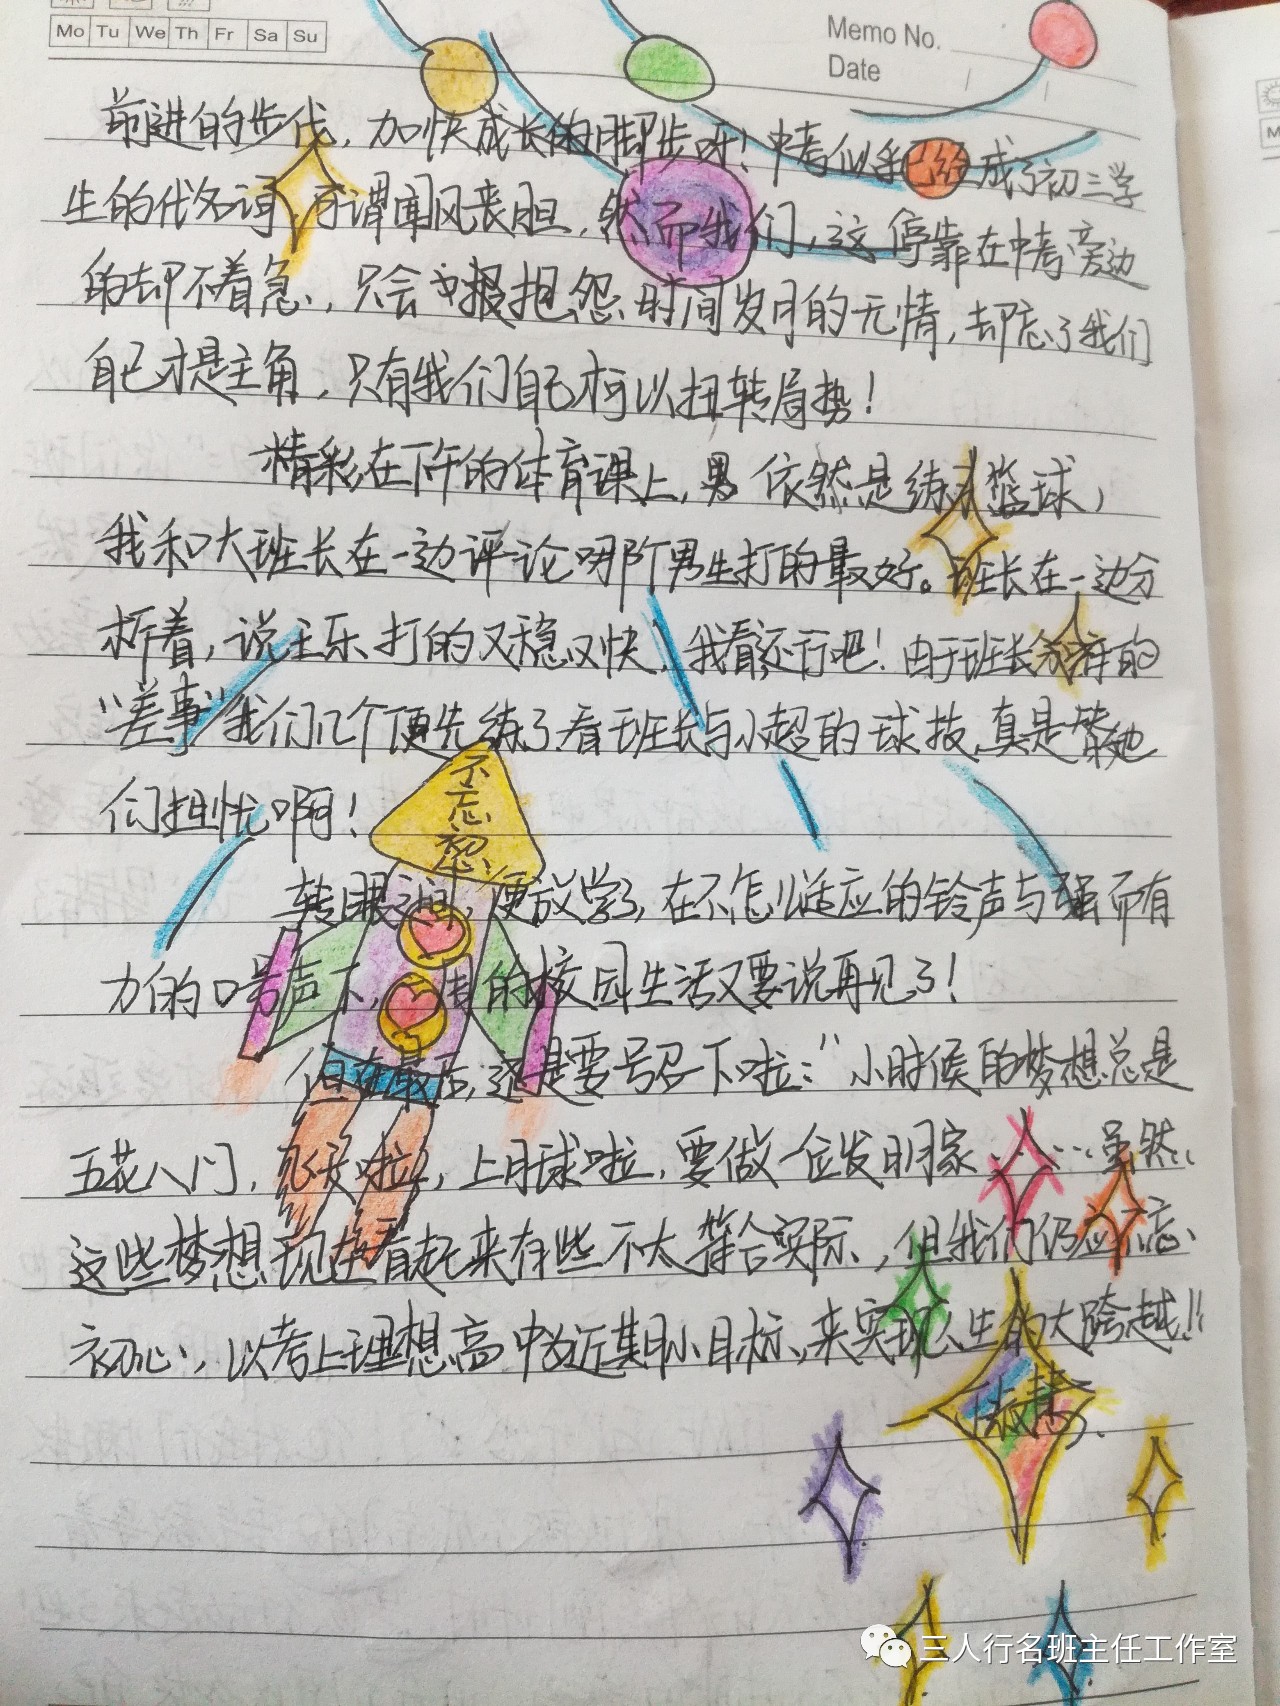 Mo Tu We Th Fr Sa Su
Memo No.
Date
前进的步伐，加快成长的脚步呀！中考似乎已经成了初三学
生的代名词，可谓闻风丧胆，然而我们，这停靠在中考旁边
的却不着急，只会抱怨时间岁月的无情，却忘了我们
自己才是主角，只有我们自己才可以扭转局势！
精彩在下午的体育课上，男依然是练习篮球，
我和大班长在一边评论哪个男生打的最好。班长在一边分
析着，说王乐打的又稳又快，我看还行吧！由于班长的
“差事”我们几个便先练了，看班长与小超的球技，真是替她
们担忧啊！
不忘初心
转眼之间，便放学了，在不怎么适应的铃声与强而有
力的口号声下，一周的校园生活又要说再见了！
但在最后，还是要号召下啦：“小时候的梦想总是
五花八门，飞天啦，上月球啦，要做一位发明家……虽然
这些梦想现在看起来有些不太符合实际，但我们仍应不忘
初心，以考上理想高中为近期小目标，来实现人生的大跨越！”
三人行名班主任工作室